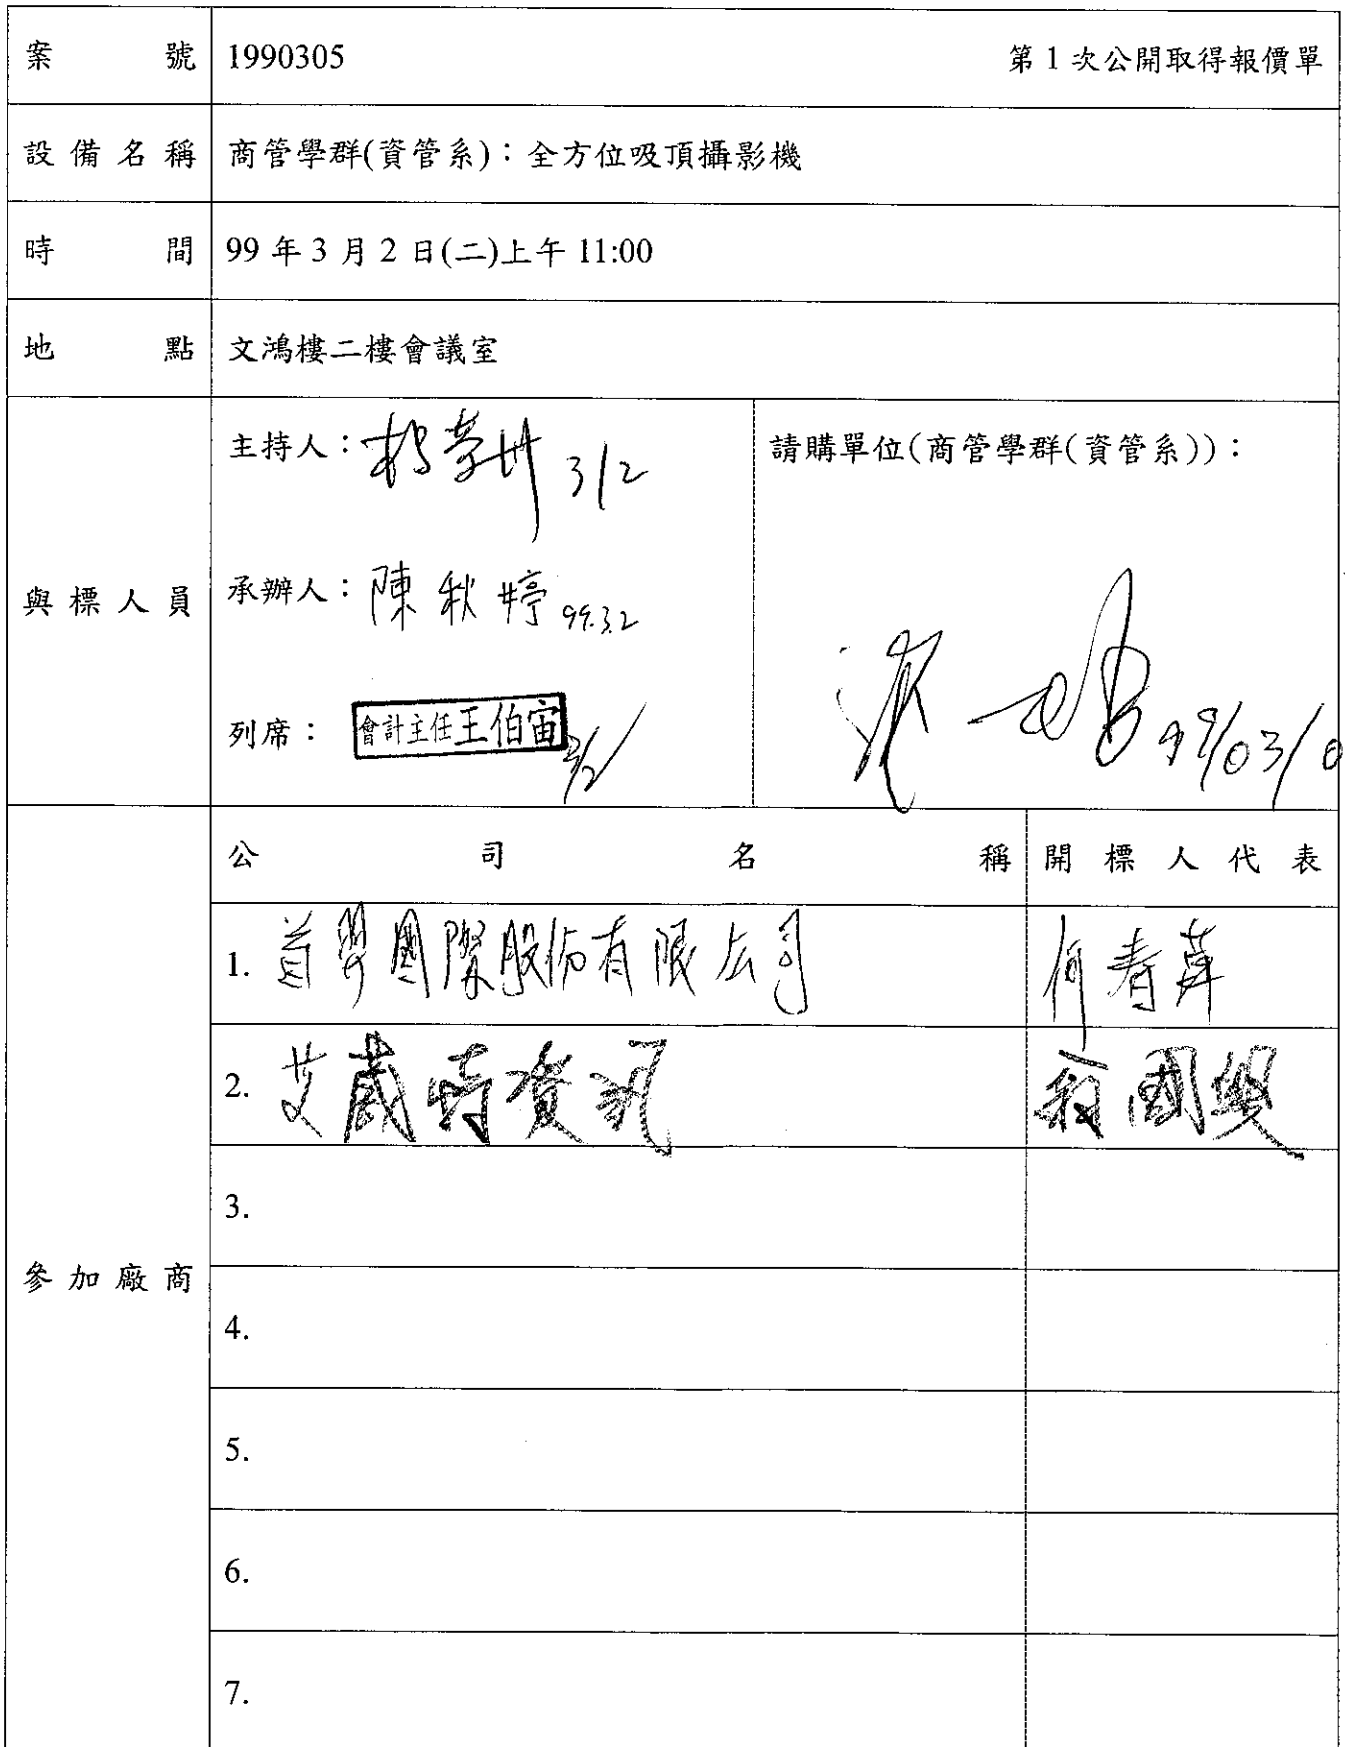 案號 1990305 第 1 次公開取得報價單
設備名稱 商管學群(資管系)：全方位吸頂攝影機
時間 99 年 3 月 2 日(二)上午 11:00
地點 文鴻樓二樓會議室
與標人員
主持人： 3/2
承辦人：陳秋婷 99.3.2
列席：會計主任王伯宙 3/2
請購單位(商管學群(資管系))：
99/03/0
參加廠商
公司名稱 開標人代表
1. 首羿國際股份有限公司 何春萍
2. 艾葳特資訊 翁國興
3.
4.
5.
6.
7.